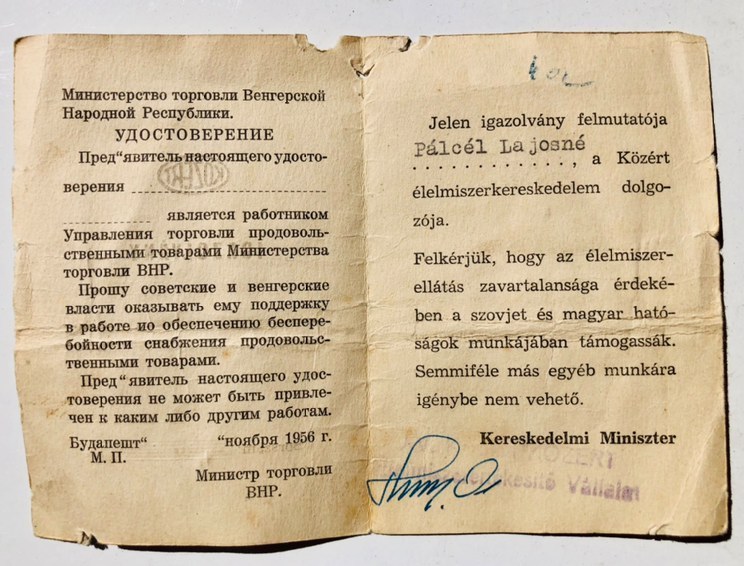 Министерство торговли Венгерской
Народной Республики.
УДОСТОВЕРЕНИЕ
Пред"явитель настоящего удосто-
верения
является работником
Управления торговли продоволь-
ственными товарами Министерства
торговли ВНР.
Прошу советские и венгерские
власти оказывать ему поддержку
в работе ио обеспечению беспере-
бойности снабжения продоволь-
ственными товарами.
Пред"явитель настоящего удос-
товерения не может быть привле-
чен к каким либо другим работам.
Будапешт" "ноября 1956 г.
М. П.
Министр торговли
ВНР.
Jelen igazolvány felmutatója
Pálcél Lajosné
............., a Közért
élelmiszerkereskedelem dolgo-
zója.
Felkérjük, hogy az élelmiszer-
ellátás zavartalansága érdeké-
ben a szovjet és magyar ható-
ságok munkájában támogassák.
Semmiféle más egyéb munkára
igénybe nem vehető.
Kereskedelmi Miniszter
KÖZÉRT
Vállalat